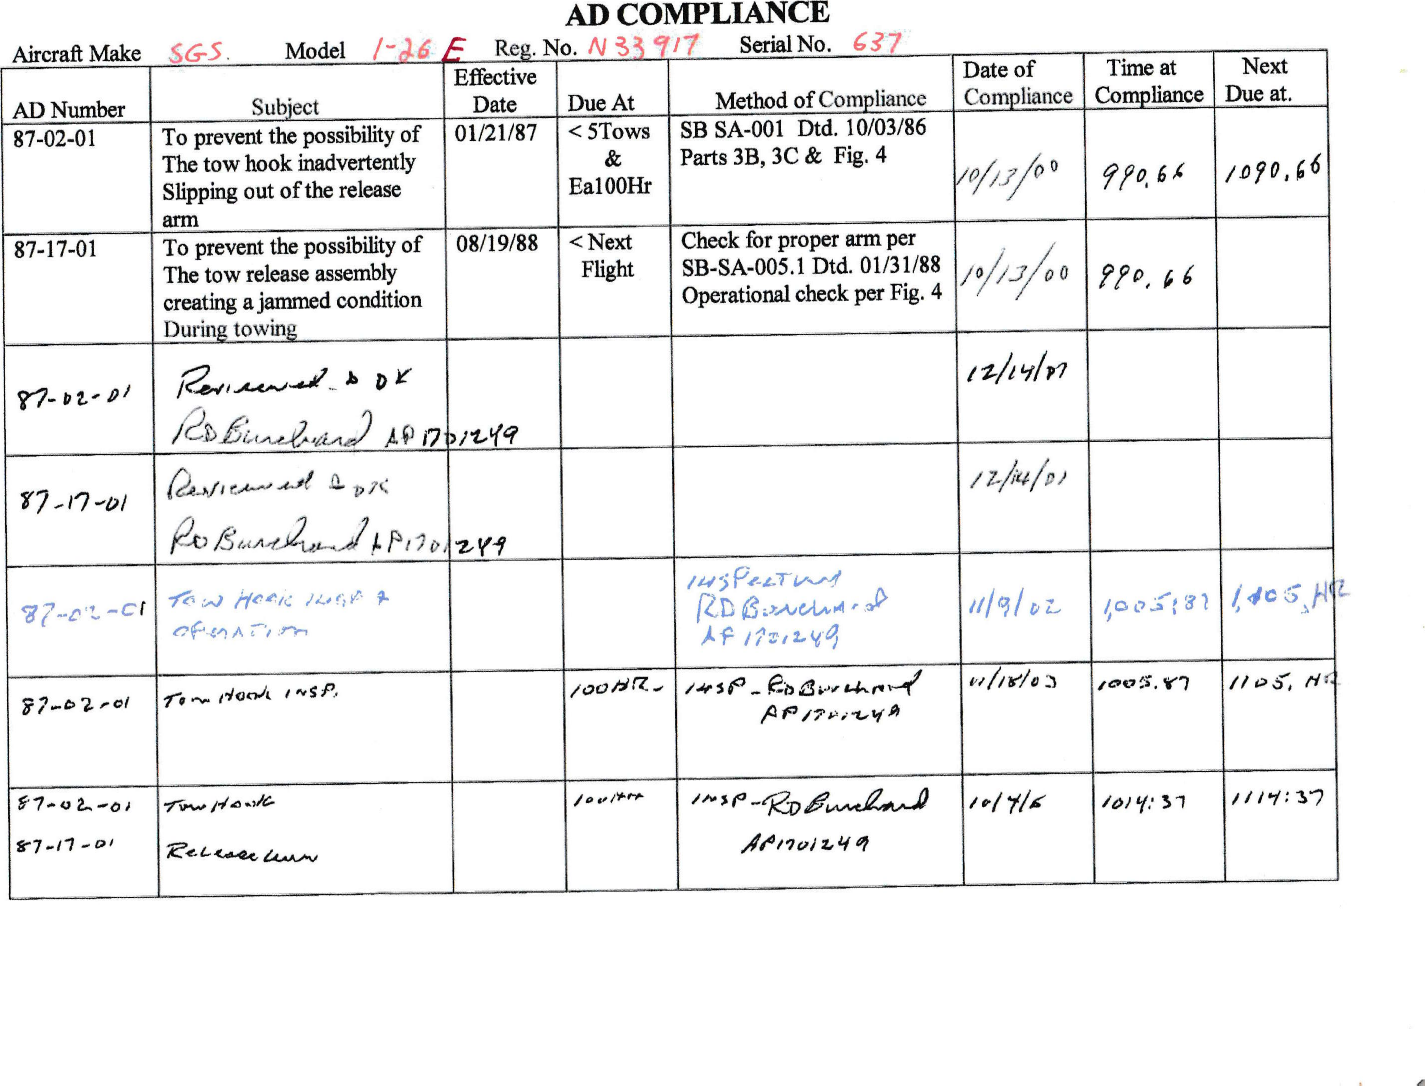 AD COMPLIANCE
Aircraft Make SGS. Model 1-26 E Reg. No. N33917 Serial No. 637
AD Number Subject Effective Date Due At Method of Compliance Date of Compliance Time at Compliance Next Due at.
87-02-01 To prevent the possibility of 01/21/87 < 5Tows SB SA-001 Dtd. 10/03/86
The tow hook inadvertently & Parts 3B, 3C & Fig. 4 10/13/00 990.66 1090.66
Slipping out of the release Ea100Hr
arm
87-17-01 To prevent the possibility of 08/19/88 < Next Check for proper arm per
The tow release assembly Flight SB-SA-005.1 Dtd. 01/31/88 10/13/00 990.66
creating a jammed condition Operational check per Fig. 4
During towing
87-02-01 Reviewed OK 12/14/01
RD Burchard AP1701249
87-17-01 Reviewed OK 12/14/01
RD Burchard AP1701249
87-02-01 Tow Hook INSP & INSPECTION 11/9/02 1,005:87 1,105, HR
OPERATION RD Burchard
AP 1701249
87-02-01 Tow Hook INSP. 100HR- INSP - RD Burchard 11/18/03 1005.87 1105, HR
AP1701249
87-02-01 Tow Hook 100HR INSP-RD Burchard 10/4/6 1014:37 1114:37
87-17-01 Release AP1701249